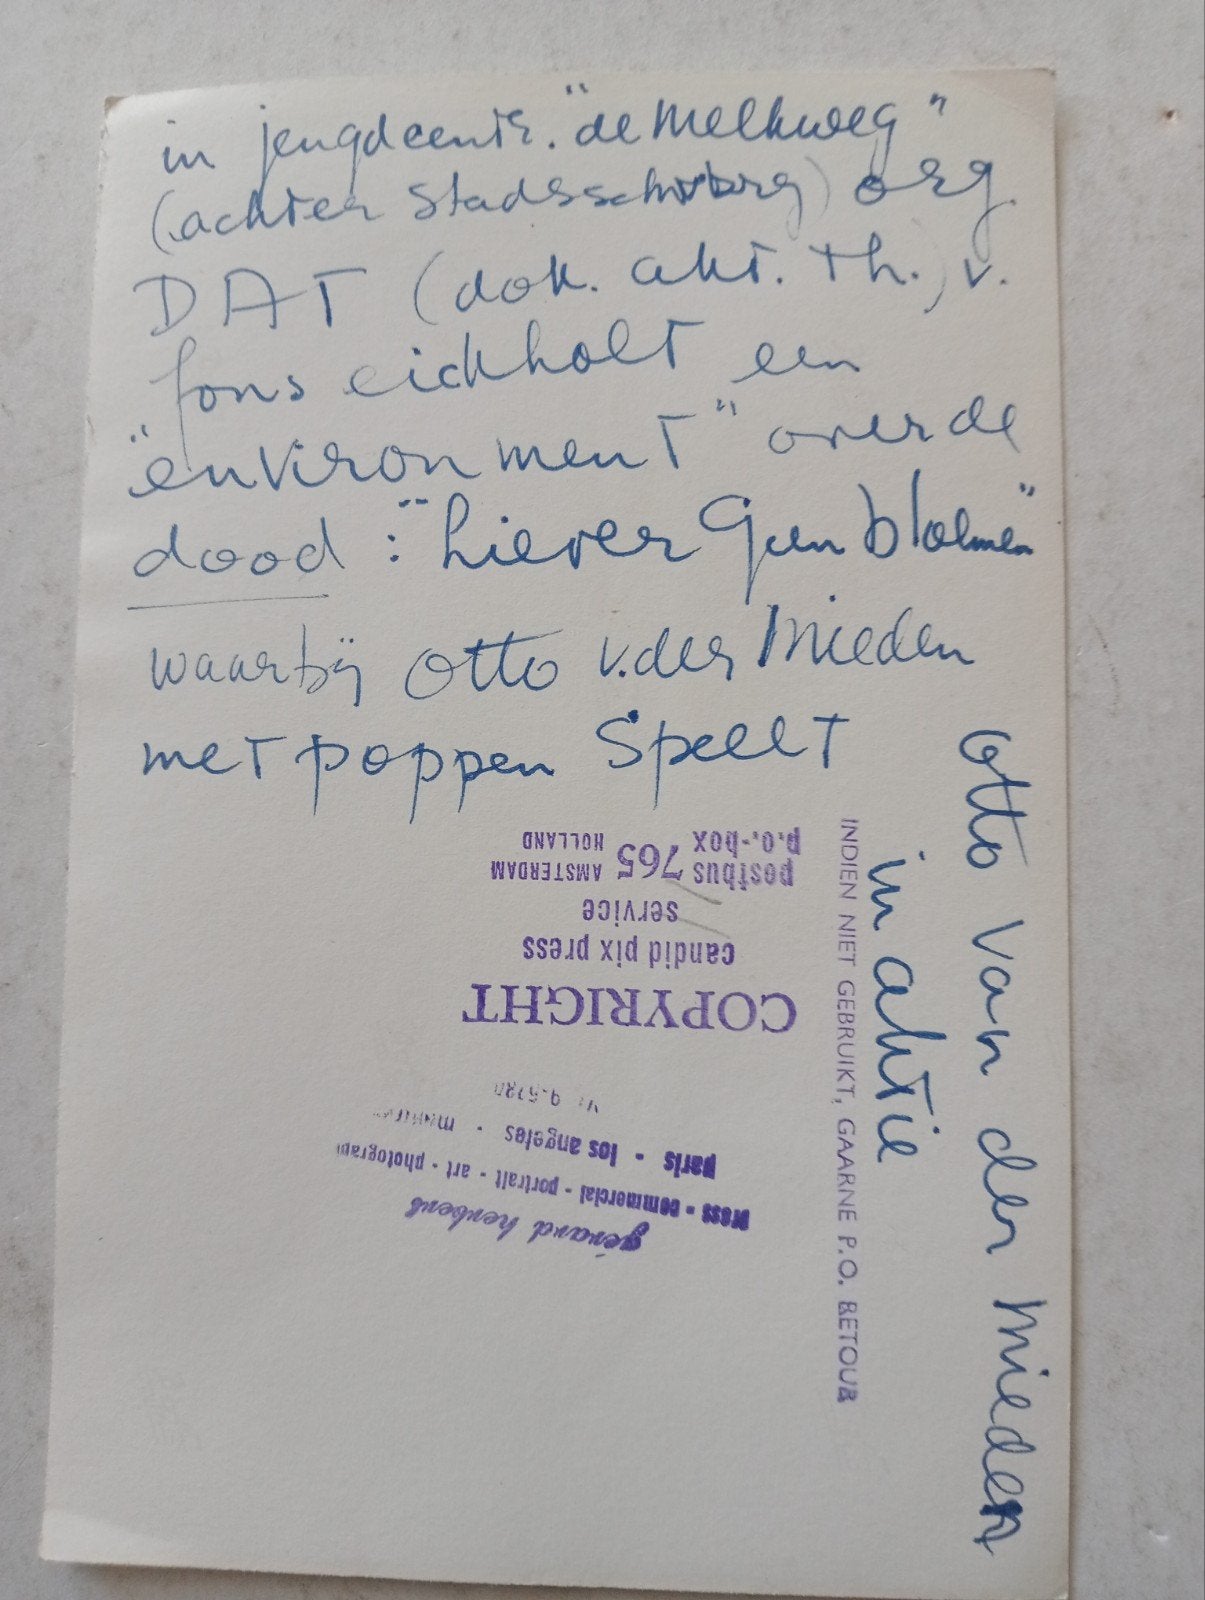 in jeugdcentr. "de Melkweg"
(achter Stadsschouwburg) org.
DAT (dok. akt. th.) v.
fons eickholt een
"environment" over de
dood : "Liever Geen bloemen"
waarbij Otto v.der Mieden
met poppen Speelt
Otto van der Mieden
in aktie
INDIEN NIET GEBRUIKT, GAARNE P.O. RETOUR
gérard herbers
press - commercial - portrait - art - photograp
paris - los angeles -
COPYRIGHT
candid pix press
service
postbus 765 AMSTERDAM
p.o.-box HOLLAND